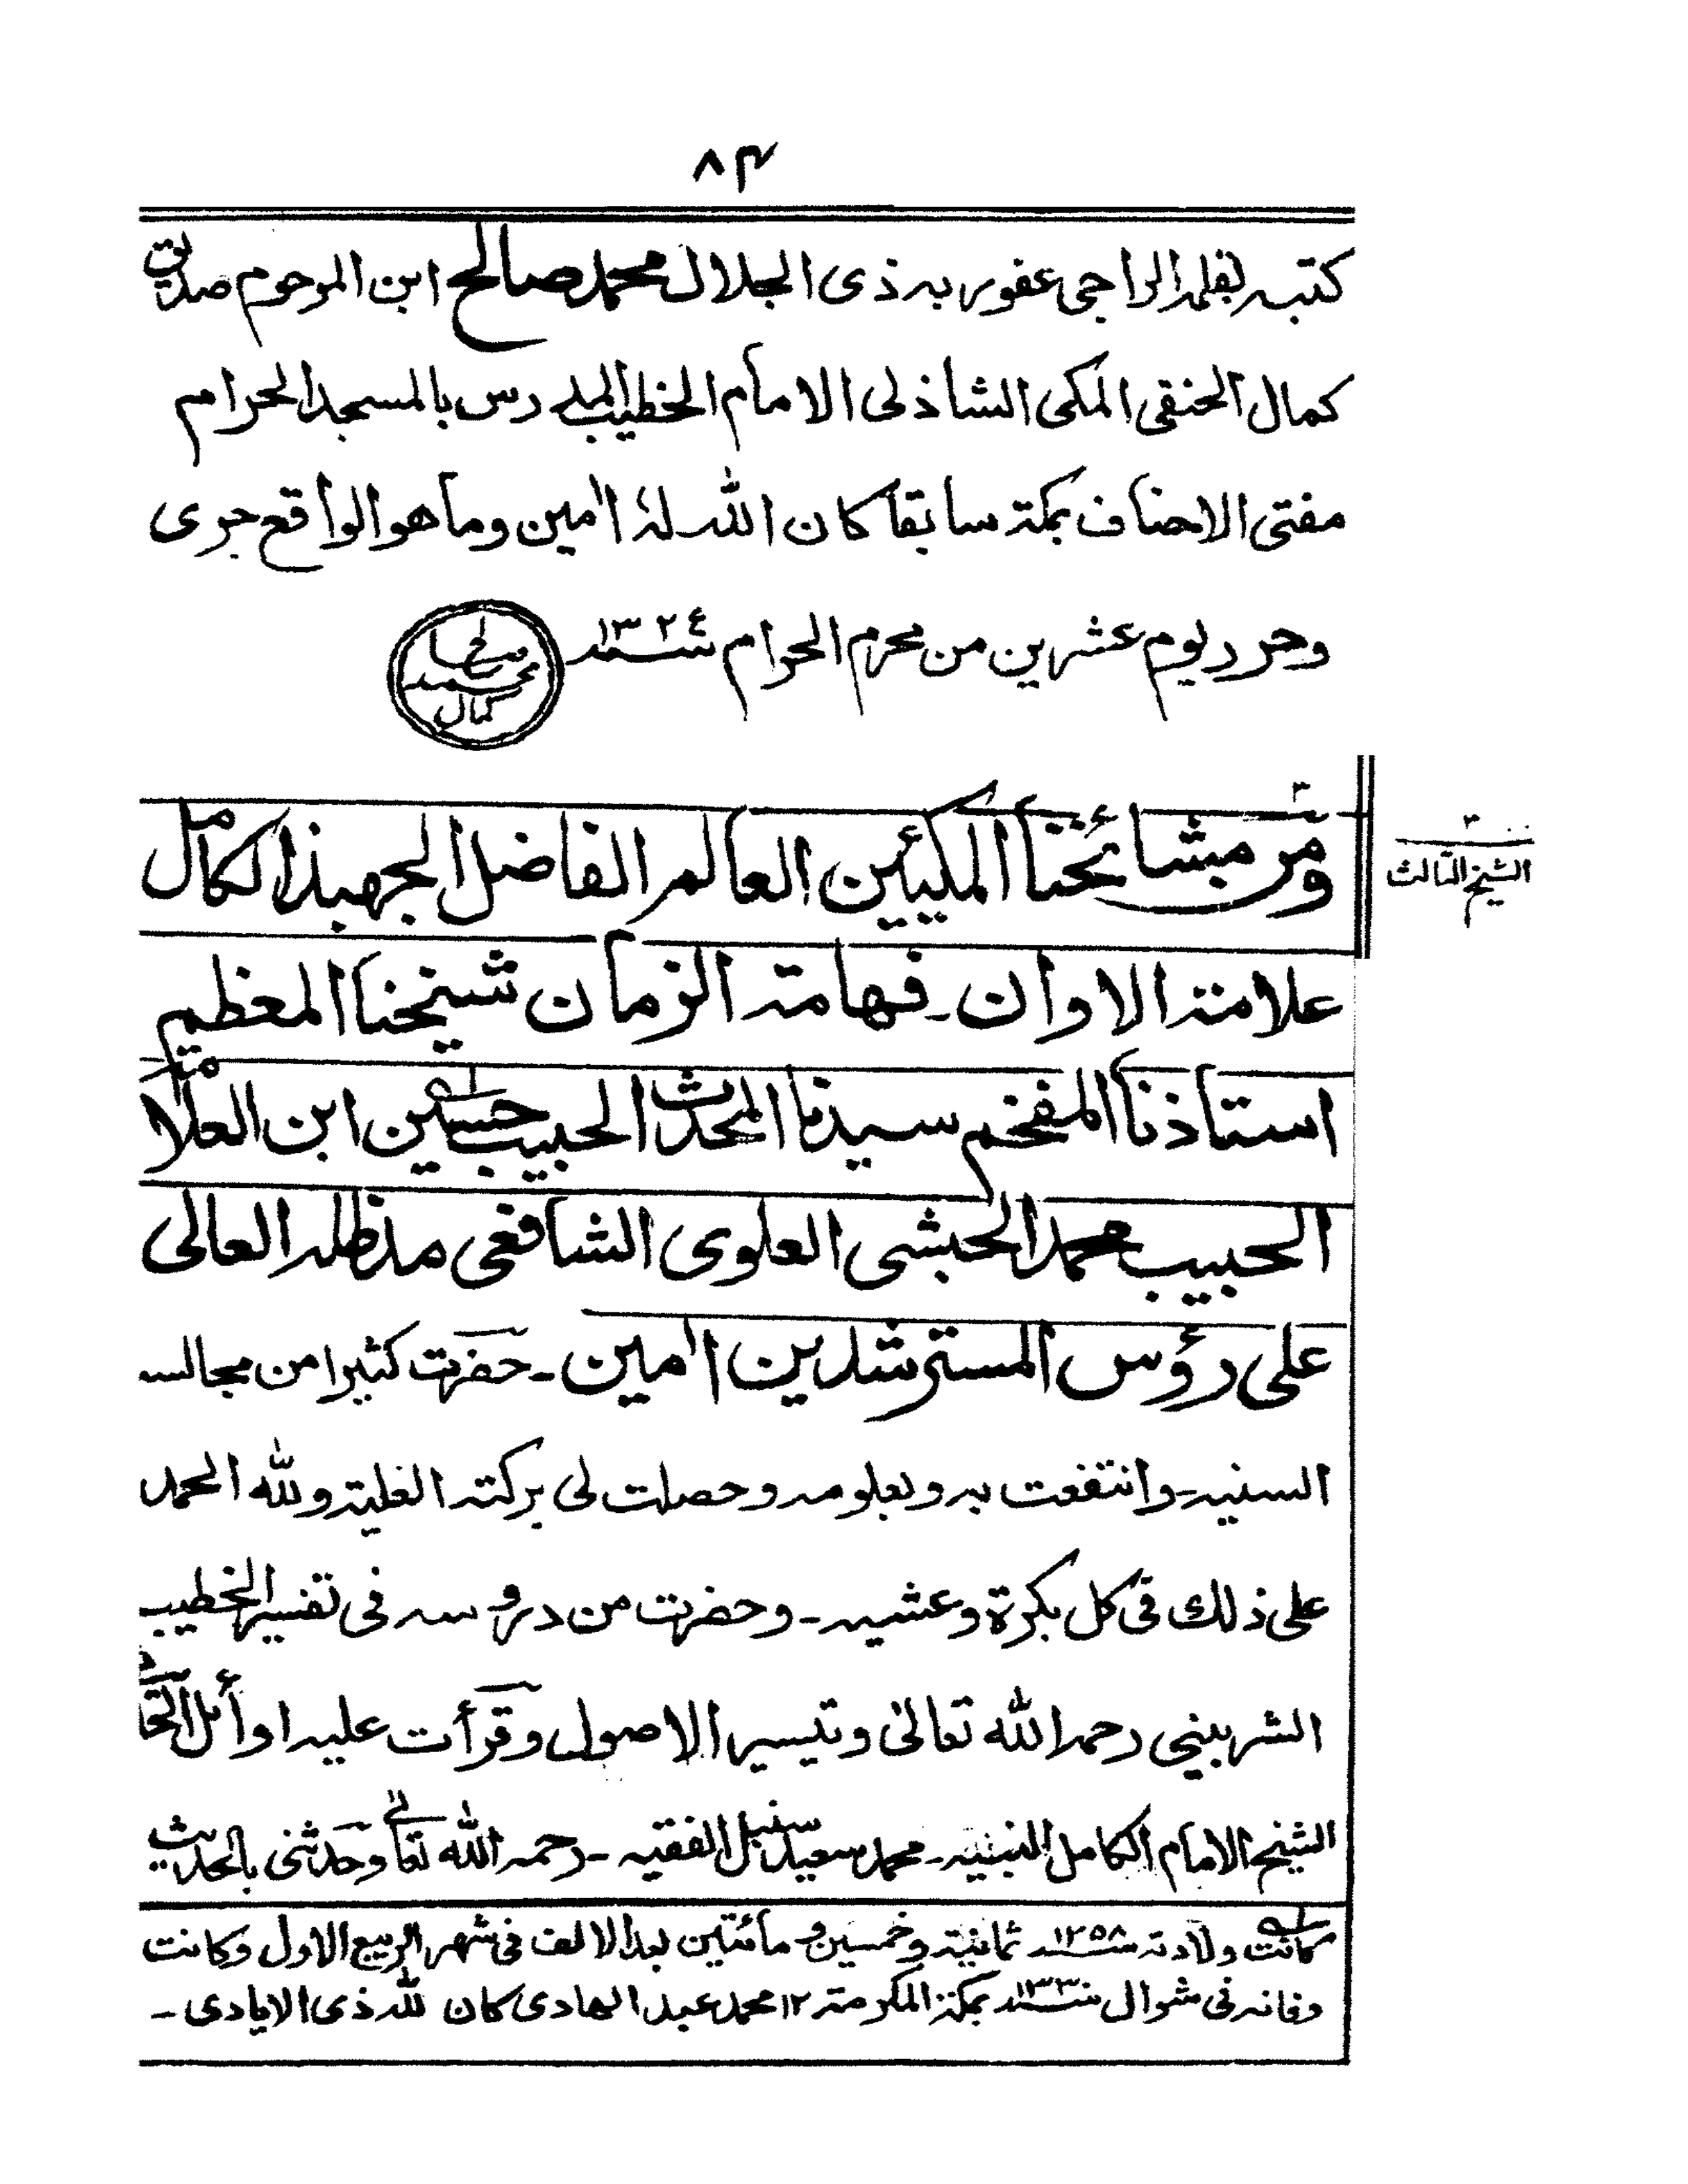 ٨٣
كتبه بقلمه الراجى عفو ربه ذى الجلال محمد صالح ابن المرحوم صديق
كمال الحنفى المكى الشاذلى الامام الخطيب المدرس بالمسجد الحرام
مفتى الاحناف بمكة سابقا كان الله له امين وما هو الواقع جرى
وحرر يوم عشرين من محرم الحرام سنه ١٣٢٤
صالح
محمد
كمال
٣
الشيخ الثالث
ومن مشائخنا المكيئين العالم الفاضل الجهبذ الكامل
علامة الاوان ـ فهامة الزمان شيخنا المعظم
استاذنا المفخم سيدنا المحدث الحبيب حسين ابن العلامة
الحبيب محمد الحبشى العلوى الشافعى مد ظله العالى
على رؤس المسترشدين امين ـ حضرت كثيرا من مجالسه
السنيه ـ وانتفعت به وبعلومه وحصلت لى بركته العلية ولله الحمد
على ذلك فى كل بكرة وعشيه ـ وحضرت من دروسه فى تفسير الخطيب
الشربينى رحمه الله تعالىٰ وتيسير الاصول وقرأت عليه اوائل
الشيخ الامام الكامل النبيه ـ محمد سعيد سنبل الفقيه ـ رحمه الله تعالى وحدثنى بالحديث
كانت ولادته سنه ١٢٥٨ ثمانية وخمسين و مائتين بعد الالف فى شهر الربيع الاول وكانت
وفاته فى شوال سنه ١٣٣٠ بمكة المكرمة ١٢ محمد عبد الهادى كان لله ذى الايادى ـ